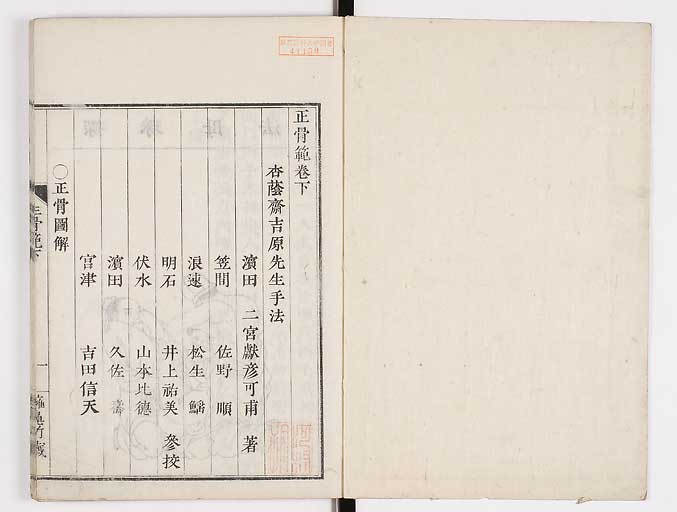 正骨範卷下
杏蔭齋吉原先生手法
濱田 二宮獻彦可甫 著
笠間 佐野 順
浪速 松生
明石 井上祐美 參挍
伏水 山本比德
濱田 久佐 壽
宮津 吉田信天
〇正骨圖解
正骨範下
一
41139